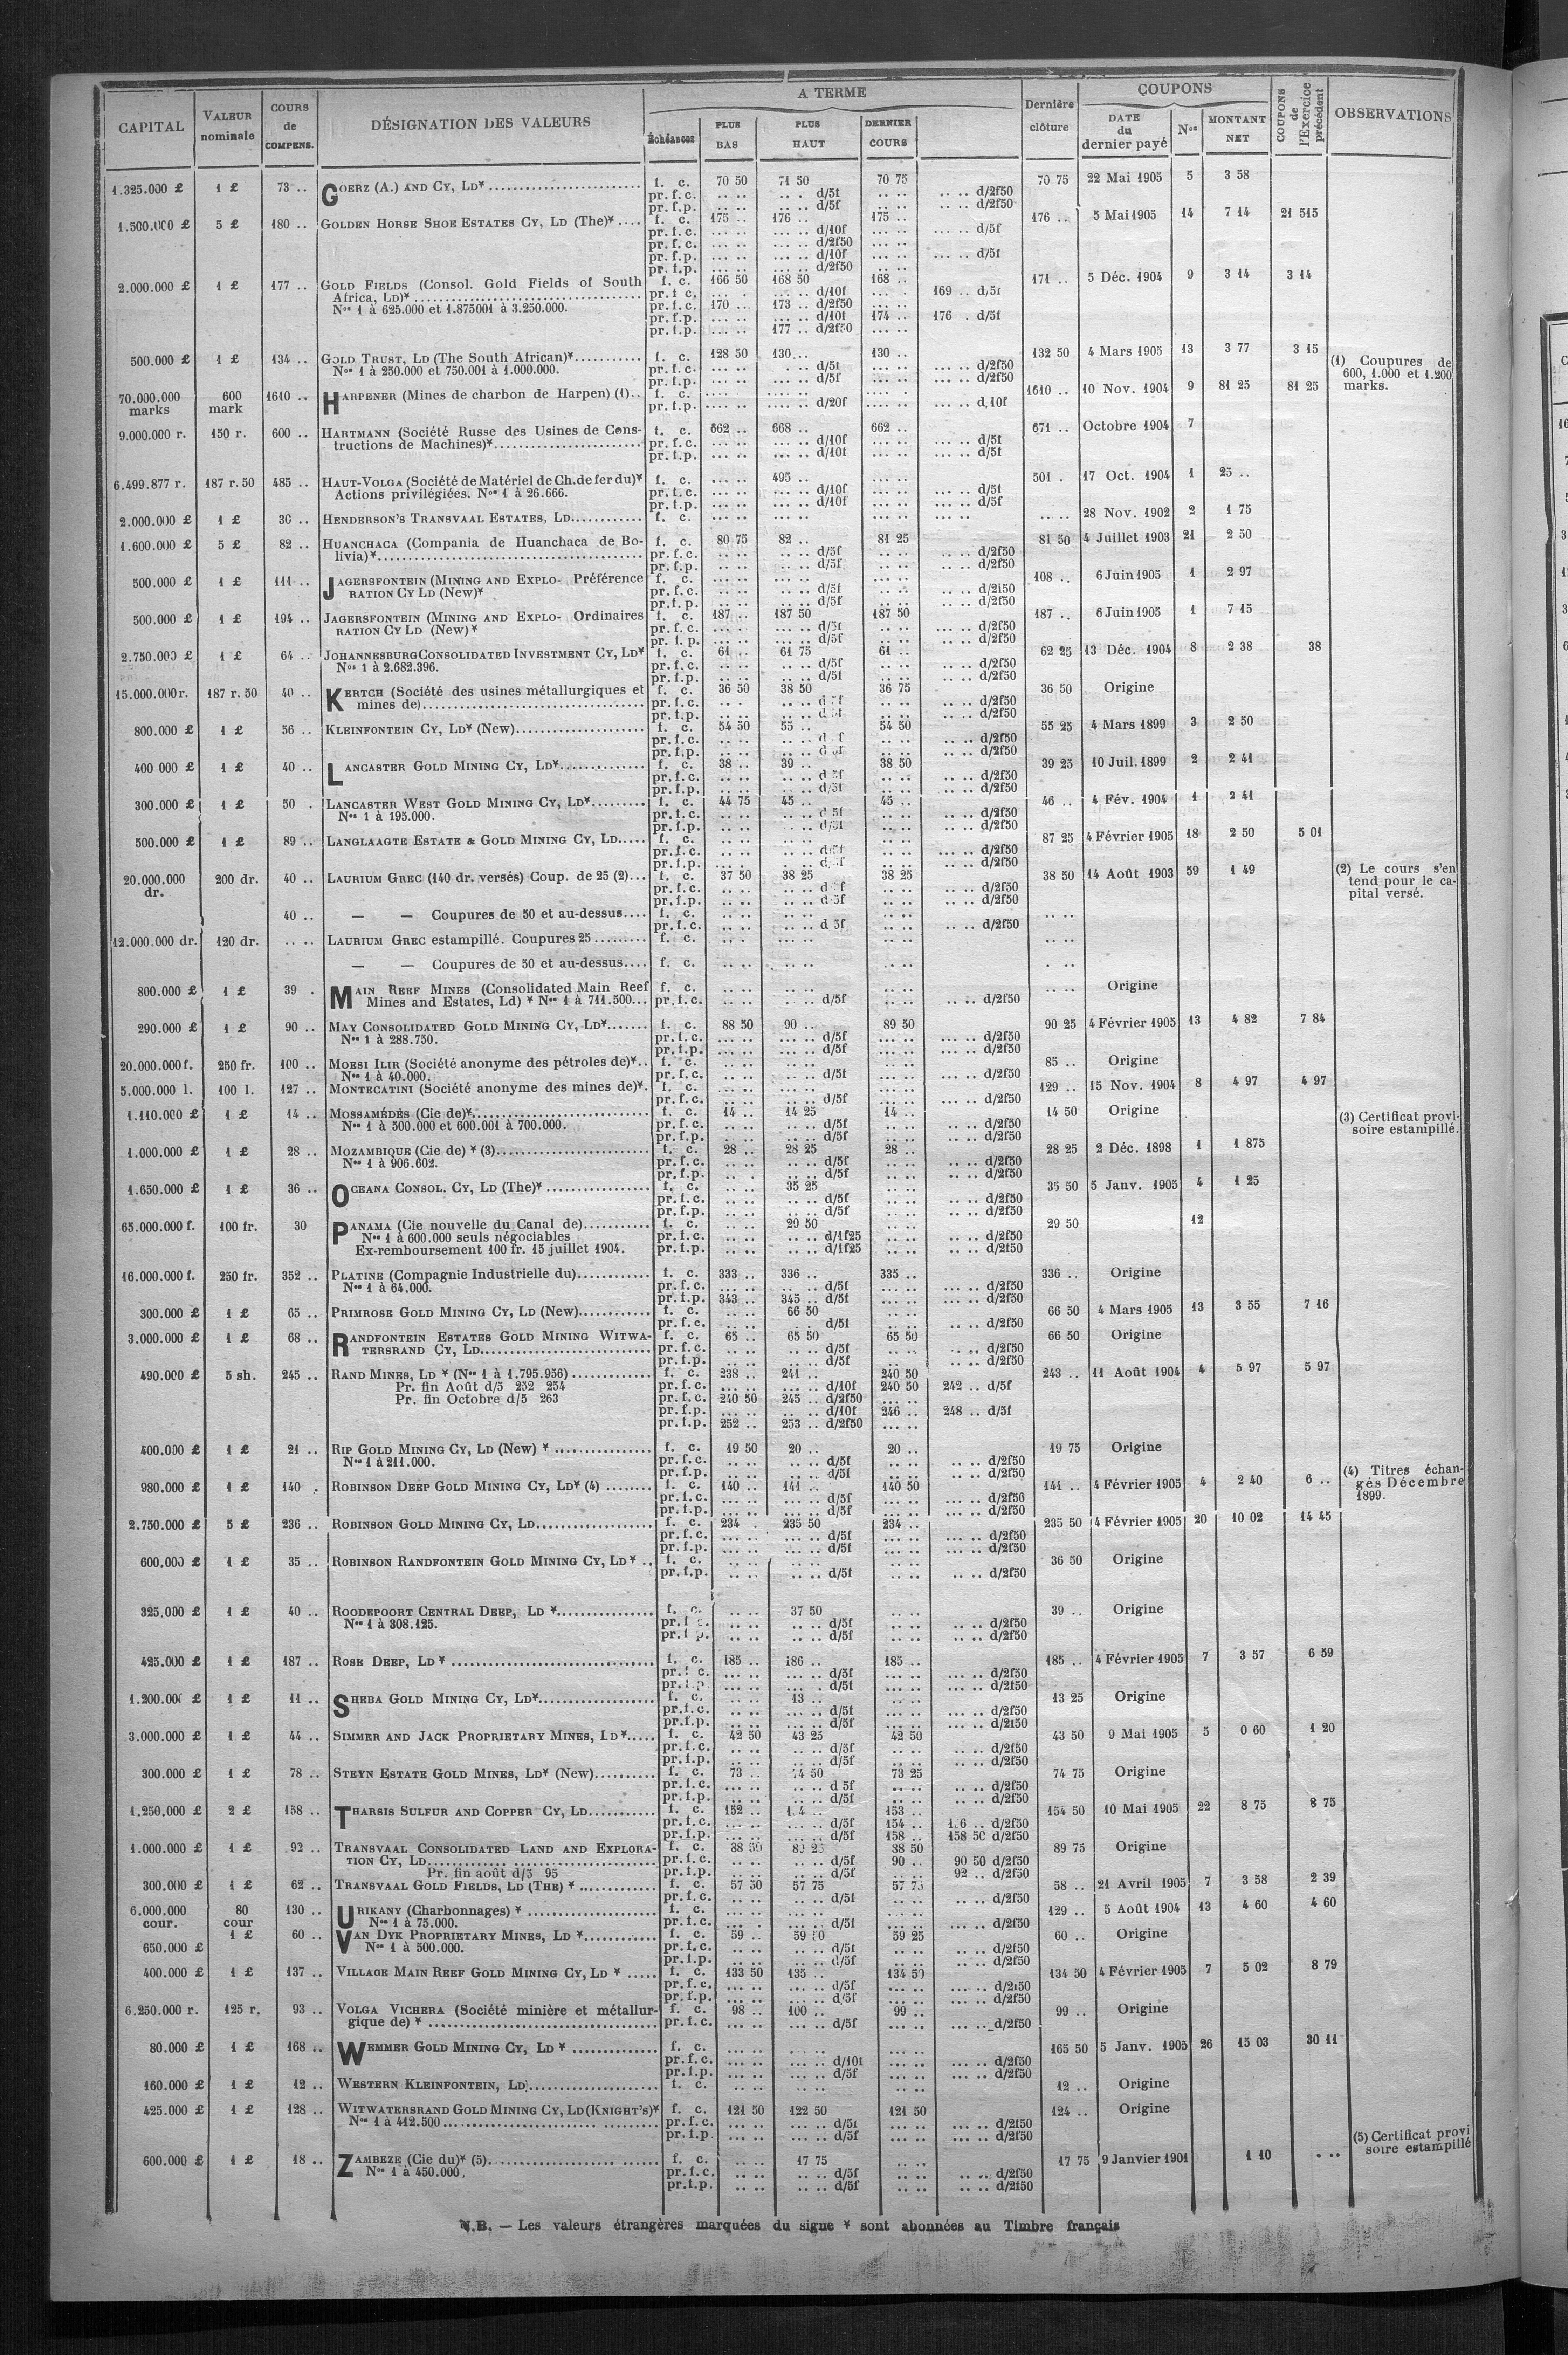 CAPITAL | VALEUR nominale | COURS de COMPENS. | DÉSIGNATION DES VALEURS | A TERME | Échéances | PLUS BAS | PLUS HAUT | DERNIER COURS | Dernière clôture | COUPONS | DATE du dernier payé | Nos | MONTANT NET | COUPONS de l'Exercice précédent | OBSERVATIONS
1.325.000 £ | 1 £ | 73 .. | GOERZ (A.) AND CY, LD* | f. c. | 70 50 | 71 50 | 70 75 | 70 75 | 22 Mai 1905 | 5 | 3 58
pr. f. c. | .. .. | .. . d/5f | .. .. | .. .. d/2f50
pr. f. p. | .. .. | .. .. d/5f | .. .. | .. .. d/2f50
1.500.000 £ | 5 £ | 180 .. | GOLDEN HORSE SHOE ESTATES CY, LD (The)* | f. c. | 175 .. | 176 .. | 175 .. | 176 .. | 5 Mai 1905 | 14 | 7 14 | 21 515
pr. f. c. | ... .. | ... .. d/10f | ... .. | ... .. d/5f
pr. f. c. | ... .. | ... .. d/2f50 | ... ..
pr. f. p. | ... .. | ... .. d/10f | ... .. | ... .. d/5f
pr. f. p. | ... .. | ... .. d/2f50 | .. ..
2.000.000 £ | 1 £ | 177 .. | GOLD FIELDS (Consol. Gold Fields of South | f. c. | 166 50 | 168 50 | 168 .. | 171 .. | 5 Déc. 1904 | 9 | 3 14 | 3 14
Africa, LD)* | pr. f. c. | ... .. | ... .. d/10f | 169 .. d/5f
Nos 1 à 625.000 et 1.875001 à 3.250.000. | pr. f. c. | 170 .. | 173 .. d/2f50 | ... ..
pr. f. p. | ... .. | ... .. d/10f | 174 .. | 176 . d/5f
pr. f. p. | ... .. | 177 .. d/2f50 | ... ..
500.000 £ | 1 £ | 134 .. | GOLD TRUST, LD (The South African)* | f. c. | 128 50 | 130 .. | 130 .. | 132 50 | 4 Mars 1905 | 13 | 3 77 | 3 15 | (1) Coupures de
Nos 1 à 250.000 et 750.001 à 1.000.000. | pr. f. c. | ... .. | d/5f | ... .. | .. .. d/2f50 | 600, 1.000 et 1.200
pr. f. p. | ... .. | ... .. d/5f | ... .. | .. .. d/2f50 | marks.
70.000.000 marks | 600 mark | 1610 .. | HARPENER (Mines de charbon de Harpen) (1).. | f. c. | .... .. | .... .. | 1610 .. | 10 Nov. 1904 | 9 | 81 25 | 81 25
pr. f. p. | .... .. | .... .. d/20f | .... .. | .... .. d/10f
9.000.000 r. | 150 r. | 600 .. | HARTMANN (Société Russe des Usines de Cons- | f. c. | 662 .. | 668 .. | 662 .. | 671 .. | Octobre 1904 | 7
tructions de Machines)* | pr. f. c. | ... .. | ... .. d/10f | ... .. | ... .. d/5f
pr. f. p. | ... .. | ... .. d/10f | ... .. | ... .. d/5f
6.499.877 r. | 187 r. 50 | 485 .. | HAUT-VOLGA (Société de Matériel de Ch. de fer du)* | f. c. | ... .. | 495 .. | ... .. | 501 . | 17 Oct. 1904 | 1 | 25 ..
Actions privilégiées. Nos 1 à 26.666. | pr. f. c. | ... .. | ... .. d/10f | ... .. | ... .. d/5f
pr. f. p. | ... .. | ... .. d/10f | ... .. | ... .. d/5f
2.000.000 £ | 1 £ | 30 .. | HENDERSON'S TRANSVAAL ESTATES, LD | f. c. | ... .. | ... .. | ... .. | .. .. | 28 Nov. 1902 | 2 | 1 75
1.600.000 £ | 5 £ | 82 .. | HUANCHACA (Compania de Huanchaca de Bo- | f. c. | 80 75 | 82 .. | 81 25 | 81 50 | 4 Juillet 1903 | 21 | 2 50
livia)* | pr. f. c. | .. .. | .. .. d/5f | .. .. | .. .. d/2f50
pr. f. p. | .. .. | .. .. d/5f | .. .. | .. .. d/2f50
500.000 £ | 1 £ | 111 .. | JAGERSFONTEIN (MINING AND EXPLO- Préférence | f. c. | ... .. | ... .. | ... .. | 108 .. | 6 Juin 1905 | 1 | 2 97
RATION CY LD (New)* | pr. f. c. | .. .. | .. .. d/5f | .. .. | .. .. d/2f50
pr. f. p. | .. .. | .. .. d/5f | .. .. | .. .. d/2f50
500.000 £ | 1 £ | 194 .. | JAGERSFONTEIN (MINING AND EXPLO- Ordinaires | f. c. | 187 .. | 187 50 | 187 50 | 187 .. | 6 Juin 1905 | 1 | 7 15
RATION CY LD (New)* | pr. f. c. | ... . | ... .. d/5f | .. .. | ... .. d/2f50
pr. f. p. | ... .. | ... .. d/5f | .. .. | ... .. d/2f50
2.750.000 £ | 1 £ | 64 .. | JOHANNESBURG CONSOLIDATED INVESTMENT CY, LD* | f. c. | 61 .. | 61 75 | 61 .. | 62 25 | 13 Déc. 1904 | 8 | 2 38 | 38
Nos 1 à 2.682.396. | pr. f. c. | .. .. | .. .. d/5f | .. .. | .. .. d/2f50
pr. f. p. | .. .. | .. .. d/5f | .. .. | .. .. d/2f50
15.000.000 r. | 187 r. 50 | 40 .. | KERTCH (Société des usines métallurgiques et | f. c. | 36 50 | 38 50 | 36 75 | 36 50 | Origine
mines de) | pr. f. c. | .. . | .. .. d 5f | .. .. | .. .. d/2f50
pr. f. p. | .. .. | .. .. d 5f | .. .. | .. .. d/2f50
800.000 £ | 1 £ | 56 .. | KLEINFONTEIN CY, LD* (New) | f. c. | 54 50 | 55 .. | 54 50 | 55 25 | 4 Mars 1899 | 3 | 2 50
pr. f. c. | .. .. | .. .. d f | .. .. | .. .. d/2f50
pr. f. p. | .. .. | .. .. d 5f | .. .. | .. .. d/2f50
400 000 £ | 1 £ | 40 .. | LANCASTER GOLD MINING CY, LD* | f. c. | 38 .. | 39 .. | 38 50 | 39 25 | 10 Juil. 1899 | 2 | 2 41
pr. f. c. | .. .. | .. .. d 5f | .. .. | .. .. d/2f50
pr. f. p. | .. .. | .. .. d/5f | .. .. | .. .. d/2f50
300.000 £ | 1 £ | 50 . | LANCASTER WEST GOLD MINING CY, LD* | f. c. | 44 75 | 45 .. | 45 .. | 46 .. | 4 Fév. 1904 | 1 | 2 41
Nos 1 à 195.000. | pr. f. c. | .. .. | .. .. d 5f | .. .. | .. .. d/2f50
pr. f. p. | .. .. | .. .. d/5f | .. .. | .. .. d/2f50
500.000 £ | 1 £ | 89 .. | LANGLAAGTE ESTATE & GOLD MINING CY, LD | f. c. | .. .. | .. .. | .. .. | 87 25 | 4 Février 1905 | 18 | 2 50 | 5 01
pr. f. c. | .. .. | .. .. d/5f | .. .. | ... .. d/2f50
pr. f. p. | .. .. | . .. d/5f | .. .. | ... .. d/2f50
20.000.000 dr. | 200 dr. | 40 .. | LAURIUM GREC (140 dr. versés) Coup. de 25 (2) | f. c. | 37 50 | 38 25 | 38 25 | 38 50 | 14 Août 1903 | 59 | 1 49 | (2) Le cours s'en
pr. f. c. | .. .. | .. .. d f | .. .. | .. .. d/2f50 | tend pour le ca-
pr. f. p. | .. .. | .. .. d 5f | .. .. | .. .. d/2f50 | pital versé.
40 .. | — — Coupures de 50 et au-dessus | f. c. | .. .. | .. .. | .. .. | .. ..
pr. f. c. | .. .. | .. .. d 5f | .. .. | .. .. d/2f50
12.000.000 dr. | 120 dr. | .. .. | LAURIUM GREC estampillé. Coupures 25 | f. c. | .. . | ... .. | .. .. | .. ..
— — Coupures de 50 et au-dessus | f. c. | .. .. | .. .. | .. .. | . ..
800.000 £ | 1 £ | 39 . | MAIN REEF MINES (Consolidated Main Reef | f. c. | .. .. | .. .. | .. .. | .. .. | Origine
Mines and Estates, Ld) * Nos 1 à 711.500 | pr. f. c. | .. .. | . .. d/5f | .. .. | .. .. d/2f50
290.000 £ | 1 £ | 90 .. | MAY CONSOLIDATED GOLD MINING CY, LD* | f. c. | 88 50 | 90 .. | 89 50 | 90 25 | 4 Février 1905 | 13 | 4 82 | 7 84
Nos 1 à 288.750. | pr. f. c. | ... .. | ... .. d/5f | ... .. | ... .. d/2f50
pr. f. p. | ... .. | ... .. d/5f | ... .. | ... .. d/2f50
20.000.000 f. | 250 fr. | 100 .. | MOESI ILIR (Société anonyme des pétroles de)* | f. c. | .. .. | .. .. | .. .. | 85 .. | Origine
Nos 1 à 40.000. | pr. f. c. | .. .. | .. .. d/5f | .. .. | ... .. d/2f50
5.000.000 l. | 100 l. | 127 .. | MONTECATINI (Société anonyme des mines de)*. | f. c. | ... .. | ... .. | ... .. | 129 .. | 15 Nov. 1904 | 8 | 4 97 | 4 97
pr. f. c. | .. .. | .. .. d/5f | .. .. | ... .. d/2f50
1.110.000 £ | 1 £ | 14 .. | MOSSAMÉDÈS (Cie de)* | f. c. | 14 .. | 14 25 | 14 .. | 14 50 | Origine | (3) Certificat provi-
Nos 1 à 500.000 et 600.001 à 700.000. | pr. f. c. | .. .. | .. .. d/5f | .. .. | .. .. d/2f50 | soire estampillé.
pr. f. p. | .. .. | .. .. d/5f | .. .. | .. .. d/2f50
1.000.000 £ | 1 £ | 28 .. | MOZAMBIQUE (Cie de) * (3) | f. c. | 28 .. | 28 25 | 28 .. | 28 25 | 2 Déc. 1898 | 1 | 1 875
Nos 1 à 906.602. | pr. f. c. | .. .. | .. .. d/5f | .. .. | .. .. d/2f50
pr. f. p. | .. . | .. .. d/5f | .. .. | .. .. d/2f50
1.650.000 £ | 1 £ | 36 .. | OCEANA CONSOL. CY, LD (The)* | f. c. | .. .. | 35 25 | .. .. | 35 50 | 5 Janv. 1905 | 4 | 1 25
pr. f. c. | .. .. | .. .. d/5f | .. .. | .. .. d/2f50
pr. f. p. | .. .. | .. .. d/5f | .. .. | .. .. d/2f50
65.000.000 f. | 100 fr. | 30 | PANAMA (Cie nouvelle du Canal de) | f. c. | .. .. | 29 50 | .. .. | 29 50 | 12
Nos 1 à 600.000 seuls négociables | pr. f. c. | .. .. | .. .. d/1f25 | .. .. | .. .. d/2f50
Ex-remboursement 100 fr. 15 juillet 1904. | pr. f. p. | .. .. | .. .. d/1f25 | .. .. | .. .. d/2f50
16.000.000 f. | 250 fr. | 352 .. | PLATINE (Compagnie Industrielle du) | f. c. | 333 .. | 336 .. | 335 .. | 336 .. | Origine
Nos 1 à 64.000. | pr. f. c. | .. .. | .. .. d/5f | ... .. | .. .. d/2f50
pr. f. p. | 343 .. | 345 .. d/5f | ... .. | .. .. d/2f50
300.000 £ | 1 £ | 65 .. | PRIMROSE GOLD MINING CY, LD (New) | f. c. | .. .. | 66 50 | .. .. | 66 50 | 4 Mars 1905 | 13 | 3 55 | 7 16
pr. f. c. | .. .. | . . d/5f | .. .. | .. .. d/2f50
3.000.000 £ | 1 £ | 68 .. | RANDFONTEIN ESTATES GOLD MINING WITWA- | f. c. | 65 .. | 65 50 | 65 50 | 66 50 | Origine
TERSRAND CY, LD | pr. f. c. | .. .. | .. .. d/5f | .. .. | .. .. d/2f50
pr. f. p. | .. .. | .. .. d/5f | .. | .. .. d/2f50
490.000 £ | 5 sh. | 245 .. | RAND MINES, LD * (Nos 1 à 1.795.956) | f. c. | 238 .. | 241 .. | 240 50 | 243 .. | 11 Août 1904 | 4 | 5 97 | 5 97
Pr. fin Août d/5 252 254 | pr. f. c. | ... .. | .. .. d/10f | 240 50 | 242 .. d/5f
Pr. fin Octobre d/5 263 | pr. f. c. | 240 50 | 245 .. d/2f50 | ... ..
pr. f. p. | ... .. | .. .. d/10f | 246 .. | 248 .. d/5f
pr. f. p. | 252 .. | 253 .. d/2f50 | ... ..
400.000 £ | 1 £ | 21 .. | RIP GOLD MINING CY, LD (New) * | f. c. | 19 50 | 20 .. | 20 .. | 19 75 | Origine
Nos 1 à 211.000. | pr. f. c. | .. .. | .. .. d/5f | .. .. | .. .. d/2f50
pr. f. p. | .. .. | .. .. d/5f | .. .. | .. .. d/2f50
980.000 £ | 1 £ | 140 . | ROBINSON DEEP GOLD MINING CY, LD* (4) | f. c. | 140 .. | 141 .. | 140 50 | 141 .. | 4 Février 1905 | 4 | 2 40 | 6 .. | (4) Titres échan-
pr. f. c. | ... .. | ... .. d/5f | ... .. | ... .. d/2f50 | gés Décembre
pr. f. p. | ... .. | ... .. d/5f | ... .. | ... .. d/2f50 | 1899.
2.750.000 £ | 5 £ | 236 .. | ROBINSON GOLD MINING CY, LD | f. c. | 234 . | 235 50 | 234 .. | 235 50 | 4 Février 1905 | 20 | 10 02 | 14 45
pr. f. c. | ... .. | ... .. d/5f | ... .. | ... .. d/2f50
pr. f. p. | ... .. | ... .. d/5f | ... .. | ... .. d/2f50
600.000 £ | 1 £ | 35 .. | ROBINSON RANDFONTEIN GOLD MINING CY, LD * | f. c. | .. .. | .. .. | .. .. | 36 50 | Origine
pr. f. p. | .. .. | .. .. d/5f | .. .. | .. .. d/2f50
325.000 £ | 1 £ | 40 .. | ROODEPOORT CENTRAL DEEP, LD * | f. c. | .. .. | 37 50 | .. .. | 39 .. | Origine
Nos 1 à 308.125. | pr. f c. | .. .. | .. .. d/5f | .. .. | .. .. d/2f50
pr. f p. | .. .. | .. .. d/5f | .. .. | .. .. d/2f50
425.000 £ | 1 £ | 187 .. | ROSE DEEP, LD * | f. c. | 185 .. | 186 .. | 185 .. | 185 .. | 4 Février 1905 | 7 | 3 57 | 6 59
pr. f c. | ... .. | ... .. d/5f | ... .. | ... .. d/2f50
pr. f. p. | ... .. | ... . d/5f | ... .. | ... .. d/2f50
1.200.000 £ | 1 £ | 11 .. | SHEBA GOLD MINING CY, LD* | f. c. | .. .. | 13 .. | .. .. | 13 25 | Origine
pr. f. c. | .. .. | .. .. d/5f | .. .. | .. .. d/2f50
pr. f. p. | .. .. | .. .. d/5f | .. .. | .. .. d/2f50
3.000.000 £ | 1 £ | 44 .. | SIMMER AND JACK PROPRIETARY MINES, LD* | f. c. | 42 50 | 43 25 | 42 50 | 43 50 | 9 Mai 1905 | 5 | 0 60 | 1 20
pr. f. c. | .. .. | .. .. d/5f | .. .. | .. .. d/2f50
pr. f. p. | .. .. | .. .. d/5f | .. .. | .. .. d/2f50
300.000 £ | 1 £ | 78 .. | STEYN ESTATE GOLD MINES, LD* (New) | f. c. | 73 .. | 74 50 | 73 25 | 74 75 | Origine
pr. f. c. | .. .. | .. .. d 5f | .. .. | .. .. d/2f50
pr. f. p. | .. .. | .. .. d/5f | .. .. | .. .. d/2f50
1.250.000 £ | 2 £ | 158 .. | THARSIS SULFUR AND COPPER CY, LD | f. c. | 152 .. | 153 .. | 154 50 | 10 Mai 1905 | 22 | 8 75 | 8 75
pr. f. c. | ... .. | ... .. d/5f | 154 .. | .. d/2f50
pr. f. p. | ... .. | ... .. d/5f | 158 .. | 158 50 d/2f50
1.000.000 £ | 1 £ | 92 .. | TRANSVAAL CONSOLIDATED LAND AND EXPLORA- | f. c. | 38 50 | 38 50 | 89 75 | Origine
TION CY, LD | pr. f. c. | .. .. | .. .. d/5f | 90 .. | 90 50 d/2f50
Pr. fin août d/5 95 | pr. f. p. | .. .. | .. .. d/5f | .. .. | 92 .. d/2f50
300.000 £ | 1 £ | 62 .. | TRANSVAAL GOLD FIELDS, LD (THE) * | f. c. | 57 50 | 57 75 | 57 75 | 58 .. | 21 Avril 1905 | 7 | 3 58 | 2 39
pr. f. c. | .. .. | .. .. d/5f | .. .. | .. .. d/2f50
6.000.000 cour. | 80 cour | 130 .. | URIKANY (Charbonnages) * | f. c. | ... .. | ... .. | ... .. | 129 .. | 5 Août 1904 | 13 | 4 60 | 4 60
Nos 1 à 75.000. | pr. f. c. | ... . | ... .. d/5f | ... .. | ... .. d/2f50
650.000 £ | 1 £ | 60 .. | VAN DYK PROPRIETARY MINES, LD * | f. c. | 59 .. | 59 50 | 59 25 | 60 .. | Origine
Nos 1 à 500.000. | pr. f. c. | .. .. | .. .. d/5f | .. .. | .. .. d/2f50
pr. f. p. | .. .. | .. .. d/5f | .. .. | .. .. d/2f50
400.000 £ | 1 £ | 137 .. | VILLAGE MAIN REEF GOLD MINING CY, LD * | f. c. | 133 50 | 135 .. | 134 50 | 134 50 | 4 Février 1905 | 7 | 5 02 | 8 79
pr. f. c. | ... .. | ... .. d/5f | ... .. | ... .. d/2f50
pr. f. p. | ... .. | ... .. d/5f | ... .. | ... .. d/2f50
6.250.000 r. | 125 r. | 93 .. | VOLGA VICHERA (Société minière et métallur- | f. c. | 98 .. | 100 .. | 99 .. | 99 .. | Origine
gique de) * | pr. f. c. | ... .. | ... .. d/5f | ... .. | ... .. d/2f50
80.000 £ | 1 £ | 168 .. | WEMMER GOLD MINING CY, LD * | f. c. | ... .. | ... .. | ... .. | 165 50 | 5 Janv. 1905 | 26 | 15 03 | 30 11
pr. f. c. | ... .. | ... .. d/10f | ... .. | ... .. d/2f50
pr. f. p. | ... .. | ... .. d/5f | ... .. | ... .. d/2f50
160.000 £ | 1 £ | 12 .. | WESTERN KLEINFONTEIN, LD | f. c. | .. .. | .. .. | .. .. | 12 .. | Origine
425.000 £ | 1 £ | 128 .. | WITWATERSRAND GOLD MINING CY, LD (KNIGHT'S)* | f. c. | 121 50 | 122 50 | 121 50 | 124 .. | Origine
Nos 1 à 412.500 | pr. f. c. | ... .. | ... .. d/5f | ... .. | ... .. d/2f50
pr. f. p. | ... .. | ... .. d/5f | ... .. | ... .. d/2f50 | (5) Certificat provi
600.000 £ | 1 £ | 18 .. | ZAMBEZE (Cie du)* (5) | f. c. | .. .. | 17 75 | .. .. | 17 75 | 9 Janvier 1901 | 1 10 | . .. | soire estampillé
Nos 1 à 450.000. | pr. f. c. | .. .. | .. .. d/5f | .. .. | .. .. d/2f50
pr. f. p. | .. .. | .. .. d/5f | .. .. | .. .. d/2f50
N.B. — Les valeurs étrangères marquées du signe * sont abonnées au Timbre français